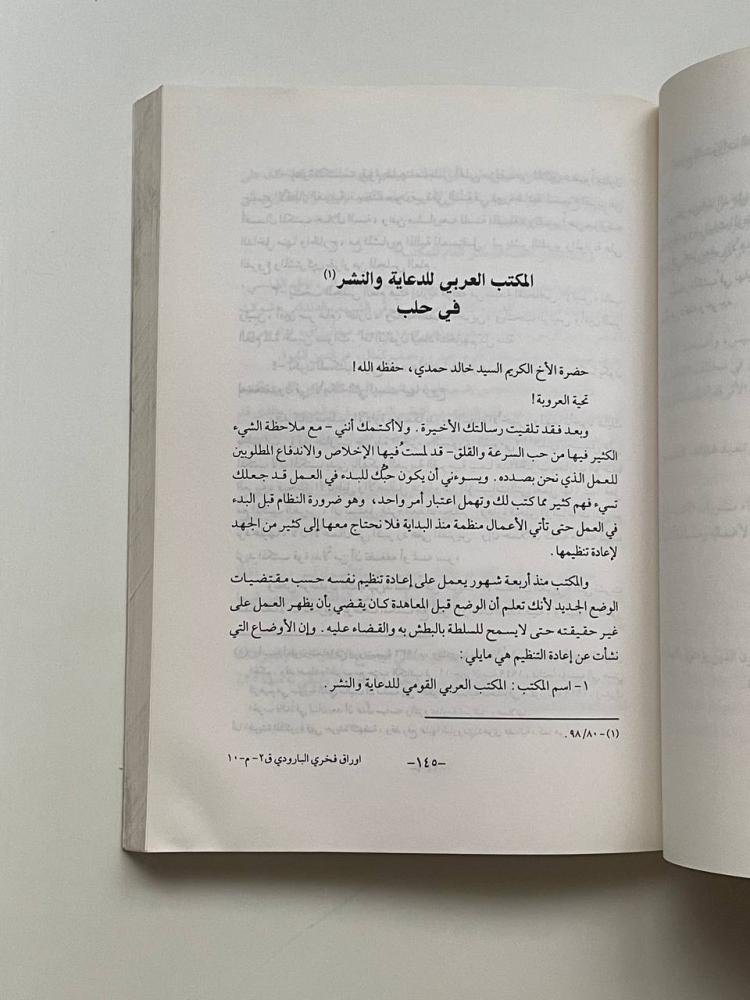 المكتب العربي للدعاية والنشر (١)
في حلب
حضرة الأخ الكريم السيد خالد حمدي، حفظه الله!
تحية العروبة!
وبعد فقد تلقيت رسالتك الأخيرة. ولاأكتمك أنني - مع ملاحظة الشيء
الكثير فيها من حب السرعة والقلق - قد لمستُ فيها الإخلاص والاندفاع المطلوبين
للعمل الذي نحن بصدده. ويسوءني أن يكون حبُّك للبدء في العمل قد جعلك
تسيء فهم كثير مما كتب لك وتهمل اعتبار أمر واحد، وهو ضرورة النظام قبل البدء
في العمل حتى تأتي الأعمال منظمة منذ البداية فلا نحتاج معها إلى كثير من الجهد
لإعادة تنظيمها.
والمكتب منذ أربعة شهور يعمل على إعادة تنظيم نفسه حسب مقتضيات
الوضع الجديد لأنك تعلم أن الوضع قبل المعاهدة كان يقضي بأن يظهر العمل على
غير حقيقته حتى لايسمح للسلطة بالبطش به والقضاء عليه. وإن الأوضاع التي
نشأت عن إعادة التنظيم هي مايلي:
١- اسم المكتب: المكتب العربي القومي للدعاية والنشر.
(١)- ٩٨/٨٠.
-١٤٥- اوراق فخري البارودي ق٢- م-١٠